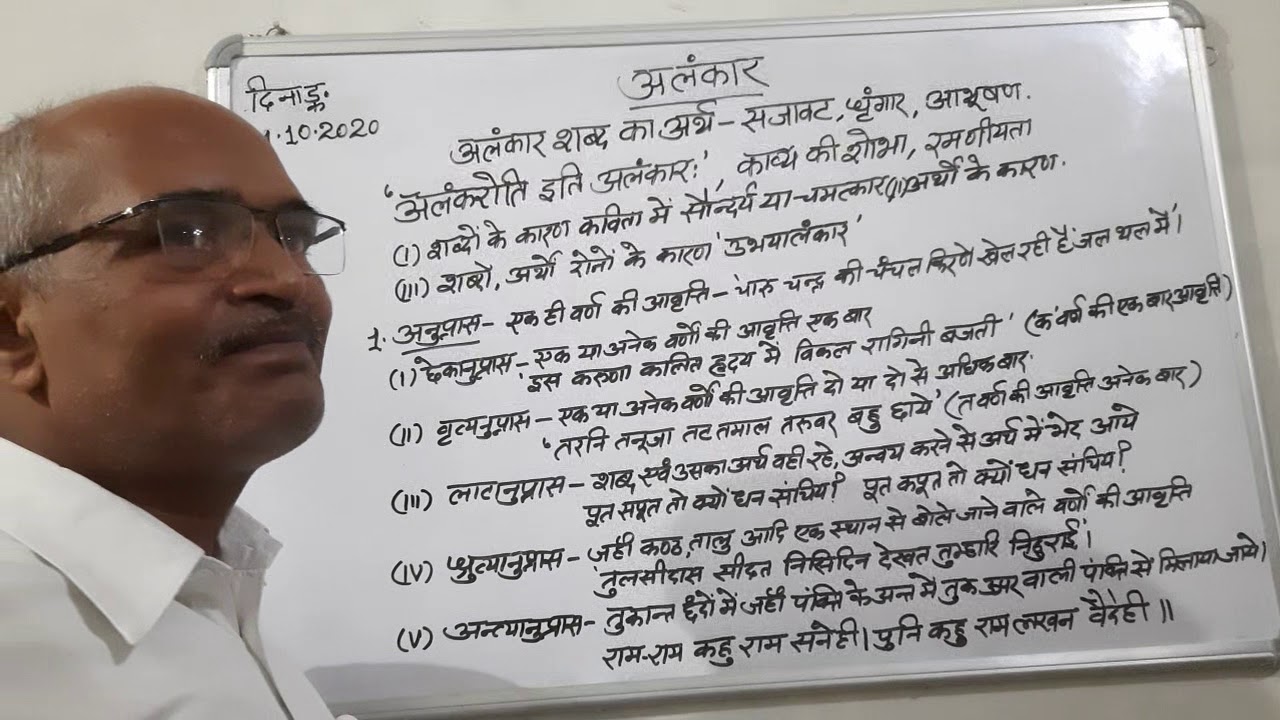 अलंकार
दिनाङ्क:
.10.2020
अलंकार शब्द का अर्थ - सजावट, श्रृंगार, आभूषण.
'अलंकरोति इति अलंकार:' काव्य की शोभा, रमणीयता
(I) शब्दों के कारण कविता में सौन्दर्य या चमत्कार (II) अर्थों के कारण.
(III) शब्दों, अर्थों दोनों के कारण 'उभयालंकार'
1. अनुप्रास - एक ही वर्ण की आवृत्ति - चारु चन्द्र की चंचल किरणें खेल रही हैं जल थल में।
(I) छेकानुप्रास - एक या अनेक वर्णों की आवृत्ति एक बार
'इस करुणा कलित हृदय में विकल रागिनी बजती' ('क' वर्ण की एक बार आवृत्ति)
(II) वृत्यनुप्रास - एक या अनेक वर्णों की आवृत्ति दो या दो से अधिक बार.
'तरनि तनूजा तट तमाल तरुवर बहु छाये' (त वर्ण की आवृत्ति अनेक बार)
(III) लाटानुप्रास - शब्द एवं उसका अर्थ वही रहे, अन्वय करने से अर्थ में भेद आये
पूत सपूत तो क्यों धन संचिय? पूत कपूत तो क्यों धन संचिय?
(IV) श्रुत्यानुप्रास - जहाँ कण्ठ, तालु आदि एक स्थान से बोले जाने वाले वर्णों की आवृत्ति
'तुलसीदास सीदत निसिदिन देखत तुम्हारि निठुराई।
(V) अन्त्यानुप्रास - तुकान्त छंदों में जहाँ पंक्ति के अन्त में तुक ऊपर वाली पंक्ति से मिलाया जाये।
राम-राम कहु राम सनेही। पुनि कहु राम लखन वैदेही॥